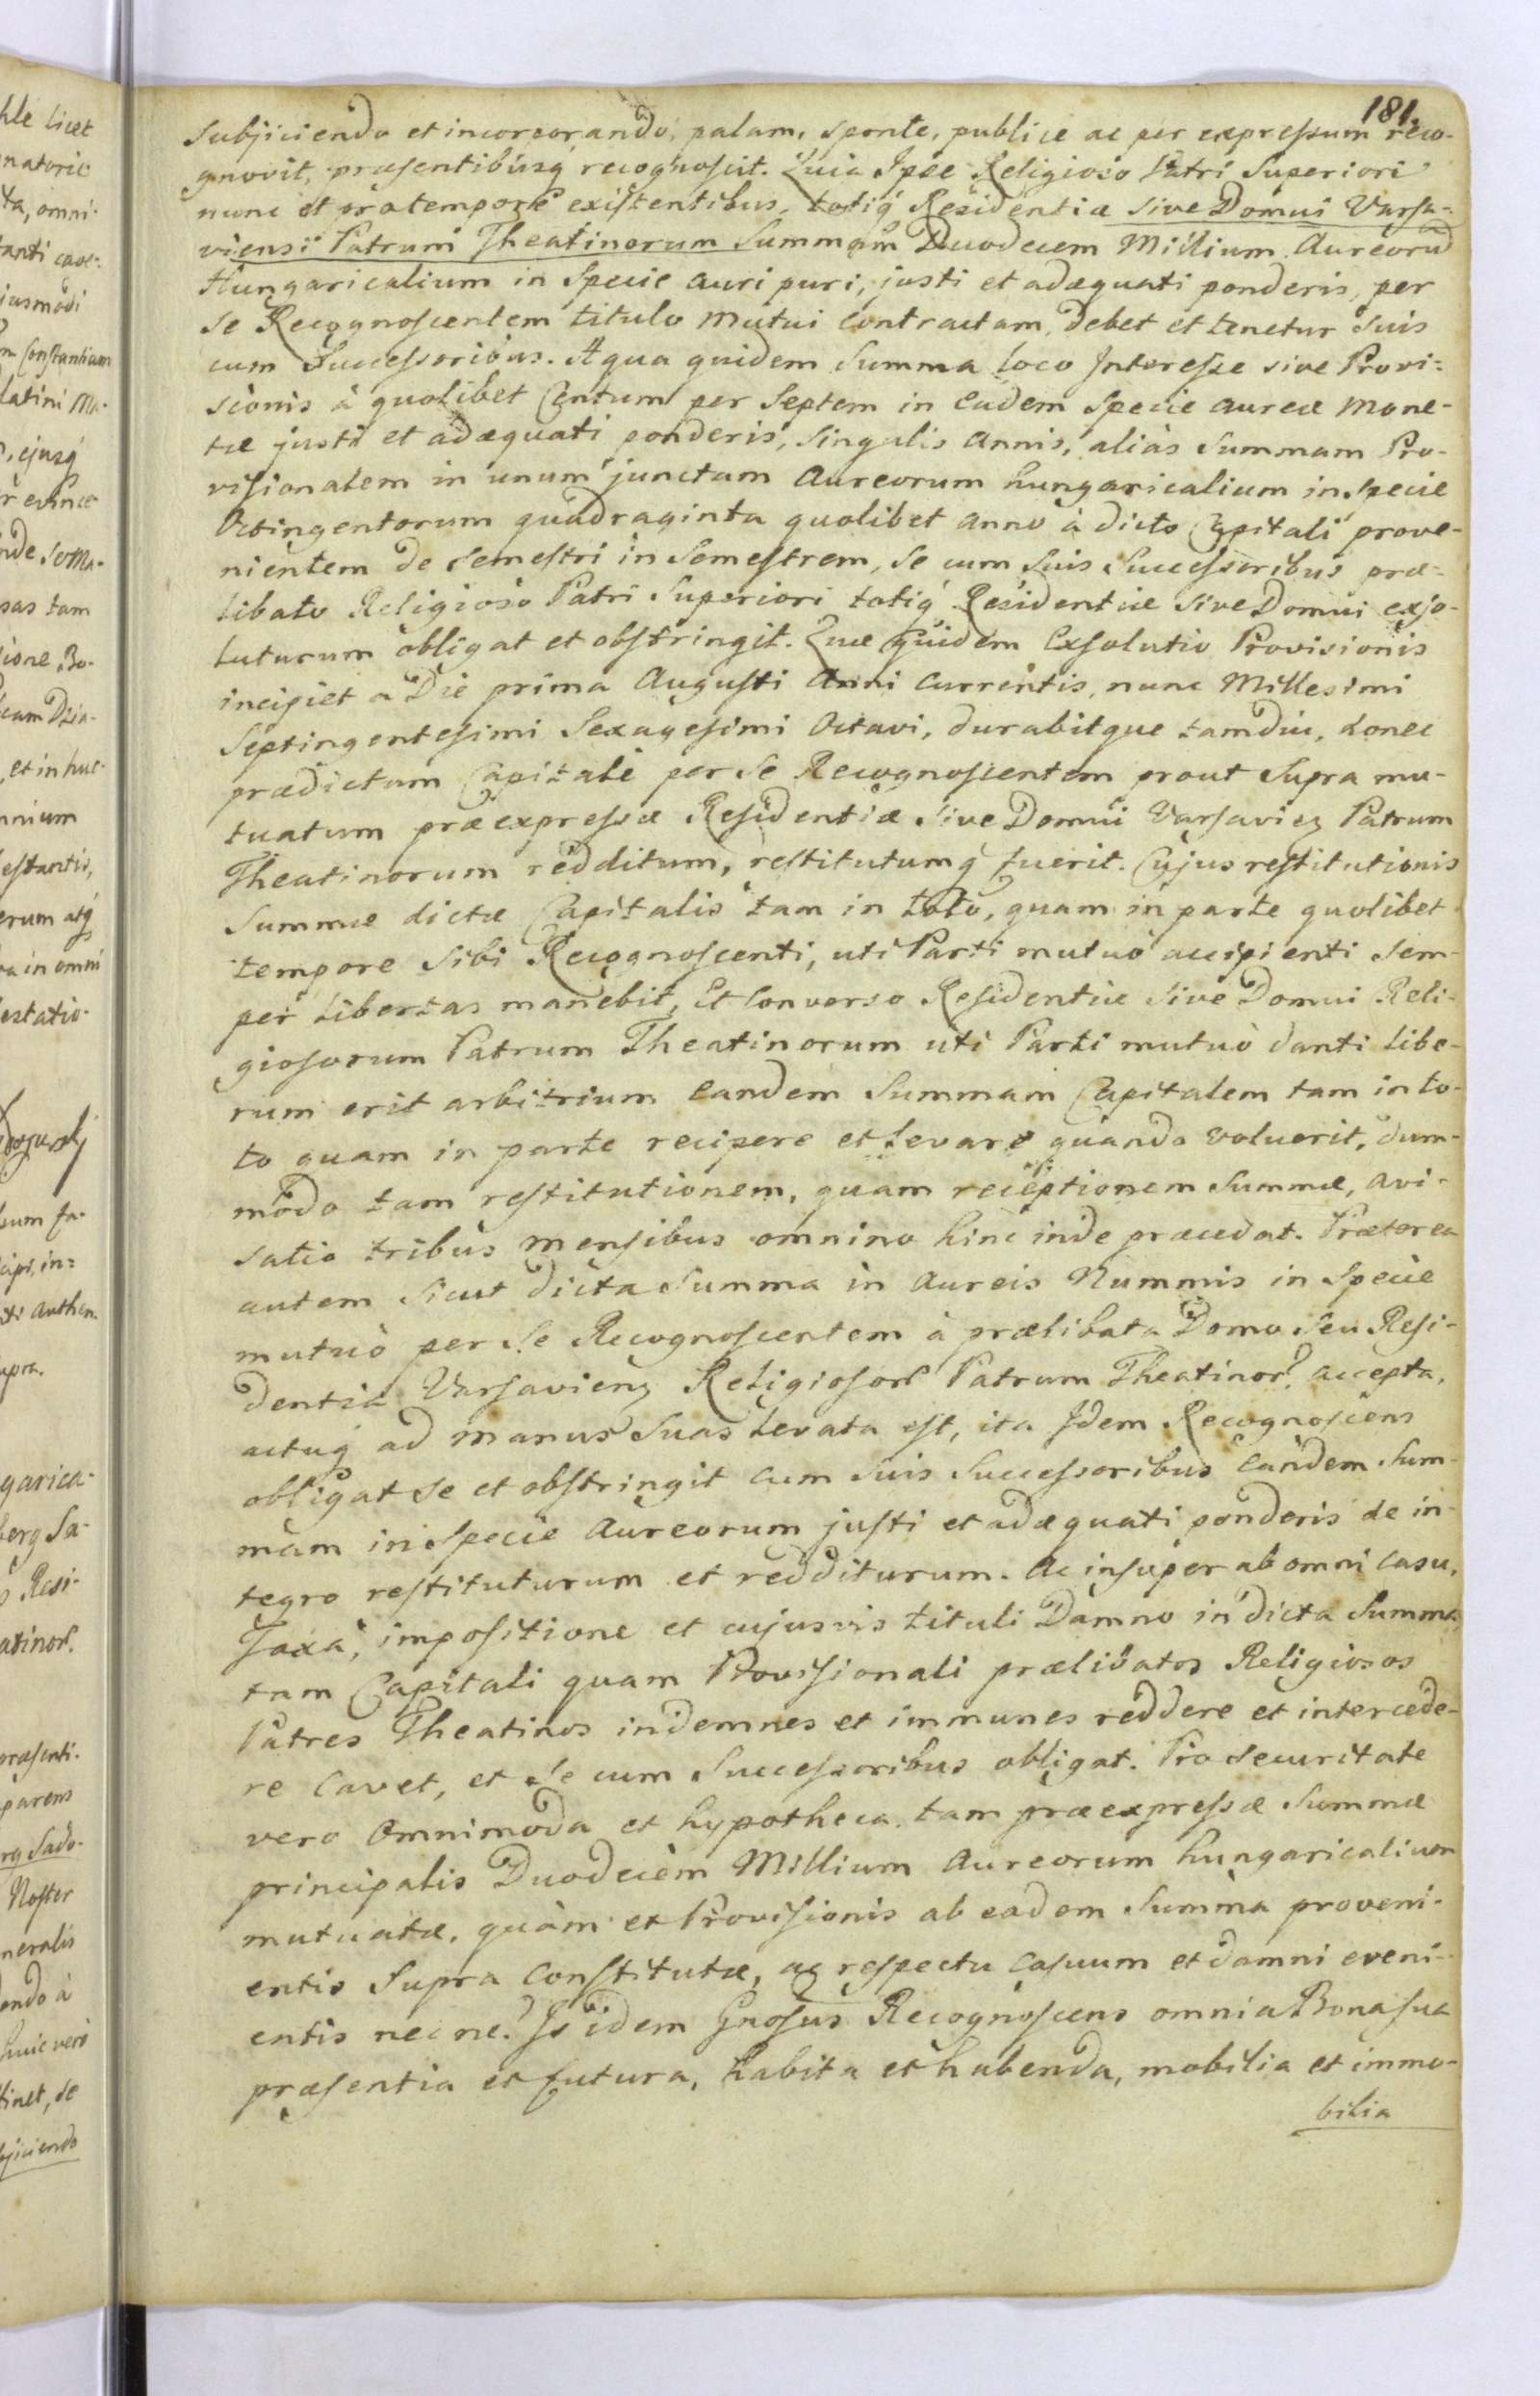 181.
Subjiciendo et incorporando, palam, sponte, publice ac per expressum reco-
gnovit, præsentibusq́ recognoscit. Quia Ipse Religioso Patri Superiori
nunc et pro tempore existentibus, totiq́ Residentiæ sive Domui Varsa-
viensi Patrum Theatinorum Summam Duodecem Millium Aureorum
Hungaricalium in Specie auri puri, justi et adæquati ponderis, per
Se Recognoscentem titulo mutui contractam, debet et tenetur suis
cum Successoribus. A qua quidem Summa loco Interesse sive Provi-
sionis à quolibet Centum per Septem in eadem Specie aureæ mone-
tæ justi et adæquati ponderis, singulis annis, aliàs Summam Pro-
visionalem in unum junctam Aureorum hungaricalium in Specie
Octingentorum quadraginta quolibet anno à dicto Capitali prove-
nientem de semestri in Semestrem, se cum suis Successoribus præ-
libato Religioso Patri Superiori totiq́ Residentiæ sive Domui exso-
luturum obligat et obstringit. Quæ quidem Exsolutio Provisionis
incipiet a Die prima Augusti Anni currentis, nunc Millesimi
Septingentesimi Sexagesimi Octavi, durabitque tamdiu, donec
prædictum Capitale per se Recognoscentem prout Supra mu-
tuatum præexpressæ Residentiæ sive Domui Varsavieɳ Patrum
Theatinorum redditum, restitutumq́ fuerit. Cujus restitutionis
Summæ dictæ Capitalis tam in toto, quam in parte quolibet
tempore Sibi Recognoscenti, uti Parti mutuò accipienti Sem-
per libertas manebit, Et converso Residentiæ sive Domui Reli-
giosorum Patrum Theatinorum uti Parti mutuò danti libe-
rum erit arbitrium eandem Summam Capitalem tam in to-
to quam in parte recipere et levare quando voluerit, dum-
modo tam restitutionem, quam receptionem Summæ, avi-
satio tribus mensibus omnino hinc inde præcedat. Præterea
autem Sicut dicta Summa in aureis Nummis in Specie
mutuò per Se Recognoscentem à prælibata Domo seu Resi-
dentia Varsavienɳ Religiosor Patrum Theatinor. accepta,
actuq́ ad manus Suas levata est, ita Idem Recognoscens
obligat se et obstringit cum suis Successoribus eandem Sum-
mam in Specie Aureorum justi et adæquati ponderis de in-
tegro restituturum et redditurum. Ac insuper ab omni casu,
Taxa, impositione et cujusvis tituli Damno in dicta Summa
tam Capitali quam Provisionali prælibatos Religiosos
Patres Theatinos indemnes et immunes reddere et intercede-
re cavet, et se cum Successoribus obligat. Pro securitate
vero omnimoda et hypotheca tam præexpressæ Summæ
principalis Duodecem Millium Aureorum hungaricalium
mutuatæ, quàm et Provisionis ab eadem Summa proveni-
entis Supra constitutæ, ac respectu casuum et damni eveni-
entis necne. Is idem Gnosus Recognoscens omnia Bona sua
præsentia et futura, habita et habenda, mobilia et immo-
bilia